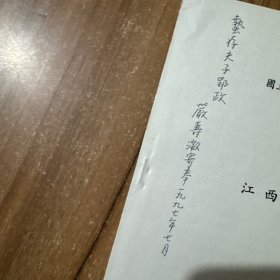 藝存夫子郢政
嚴壽澂寄奉一九九七年七月
國
江西